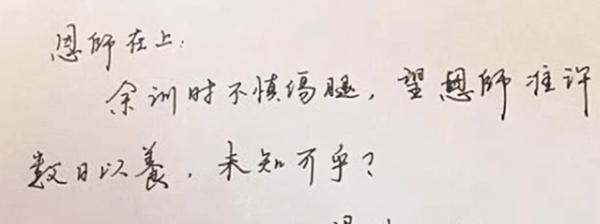 恩师在上：
余训时不慎伤腿，望恩师准许
数日以養，未知可乎？